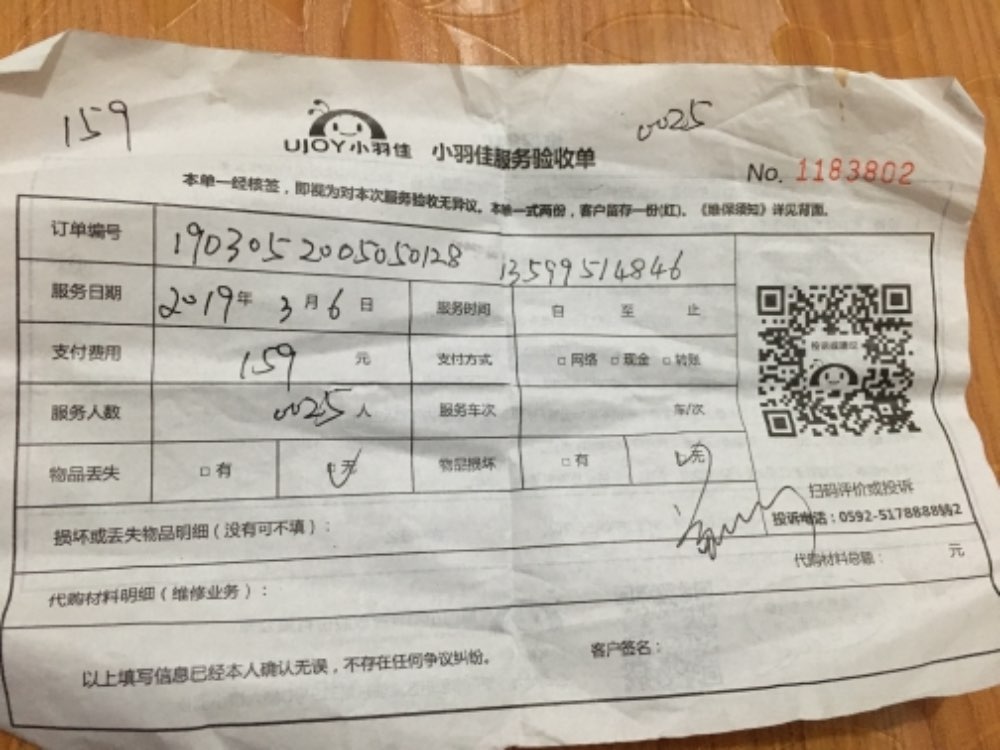 159
0025
UJOY小羽佳 小羽佳服务验收单
No. 1183802
本单一经核签，即视为对本次服务验收无异议。本单一式两份，客户留存一份(红)。《维保须知》详见背面。
订单编号 190305 2005050128 13599514846
服务日期 2019年 3月6日 服务时间 自 至 止
支付费用 159 元 支付方式 □网络 □现金 □转账
服务人数 0025人 服务车次 车/次
物品丢失 □有 □无 物品损坏 □有 □无
投诉或建议
扫码评价或投诉
投诉电话：0592-5178888转2
损坏或丢失物品明细（没有可不填）：
代购材料总额： 元
代购材料明细（维修业务）：
以上填写信息已经本人确认无误，不存在任何争议纠纷。 客户签名：